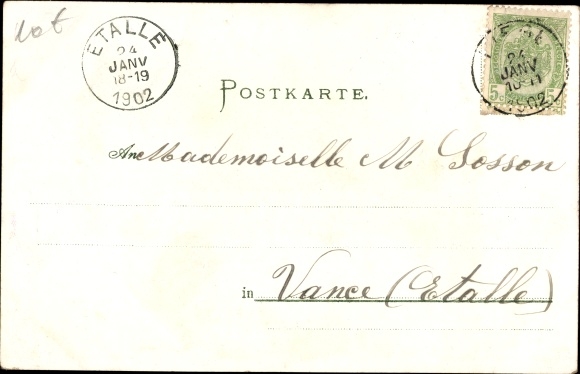 lot
ETALLE
24
JANV
18-19
1902
24
JANV
10-11
1902
5c
5c
POSTKARTE.
An Mademoiselle M Sosson
in Vance (Etalle)